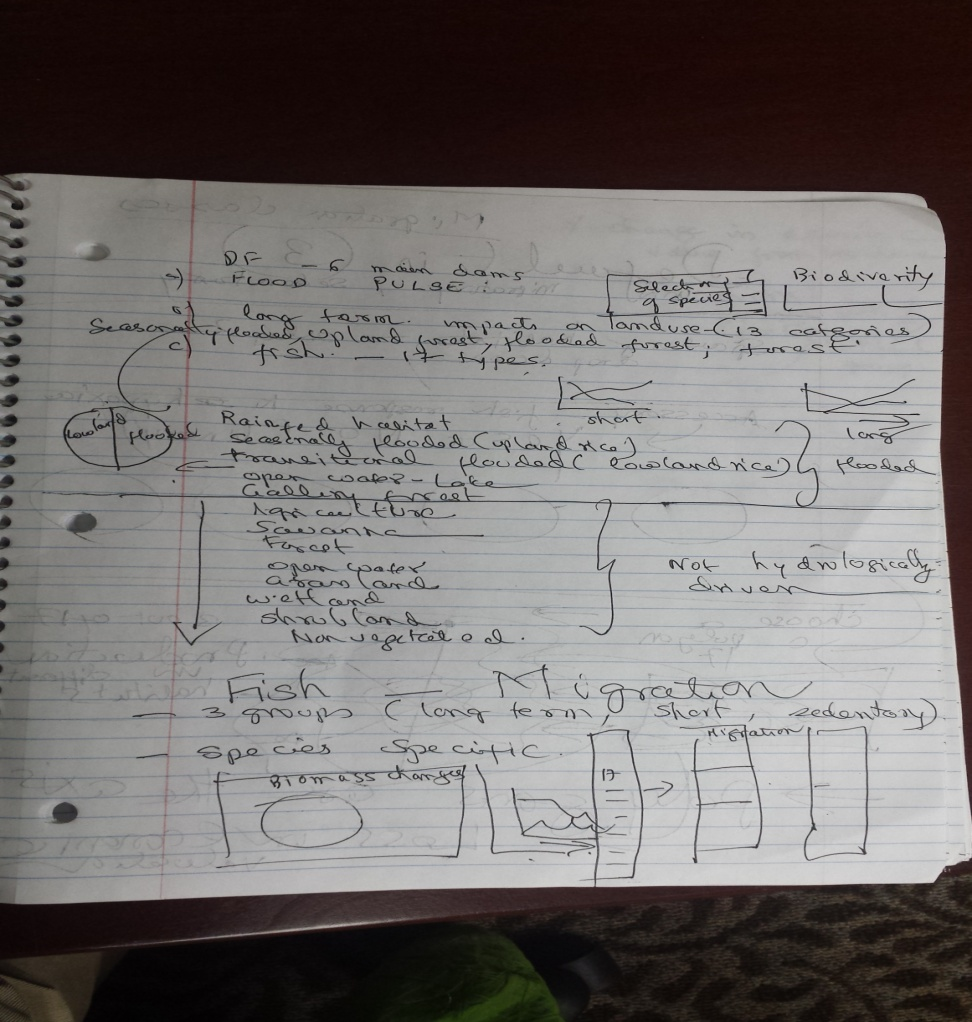 DF - 6 main dams
a) FLOOD PULSE:
Selection of species
Biodiverity
b) long term. impacts on landuse - (13 categories)
Seasonally flooded, upland forest, flooded forest, forest.
c) fish. - 17 types.
short
long
lowland flooded
Rainfed habitat
Seasonally flooded (upland rice)
transitional flooded (lowland rice)
flooded
open water - Lake
Gallery forest
Agriculture
Savanna
Forest
open water
Grassland
wetland
shrubland
Non vegetated.
Not hydrologically driven
Fish - Migration
- 3 groups (long term, short, sedentory)
- species specific.
Migration
Biomass changes
17